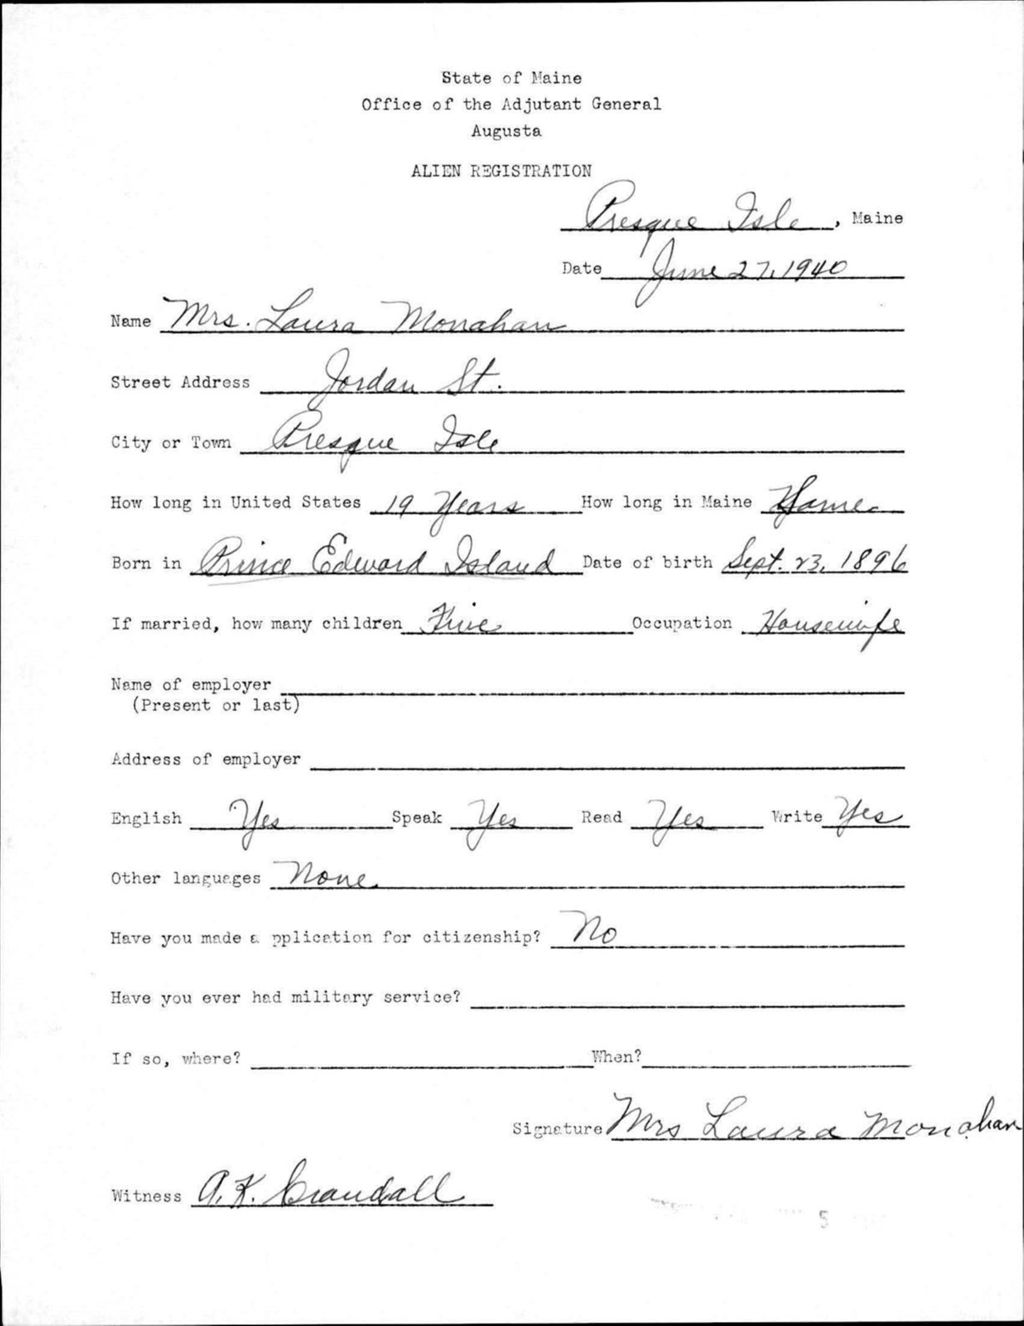 State of Maine
Office of the Adjutant General
Augusta
ALIEN REGISTRATION
Presque Isle, Maine
Date June 27, 1940
Name Mrs. Laura Monahan
Street Address Jordan St.
City or Town Presque Isle
How long in United States 19 Years How long in Maine Same
Born in Prince Edward Island Date of birth Sept. 23, 1896
If married, how many children Five Occupation Housewife
Name of employer
(Present or last)
Address of employer
English Yes Speak Yes Read Yes Write Yes
Other languages None.
Have you made a pplication for citizenship? No
Have you ever had military service?
If so, where? When?
Signature Mrs Laura Monahan
Witness A. K. Crandall